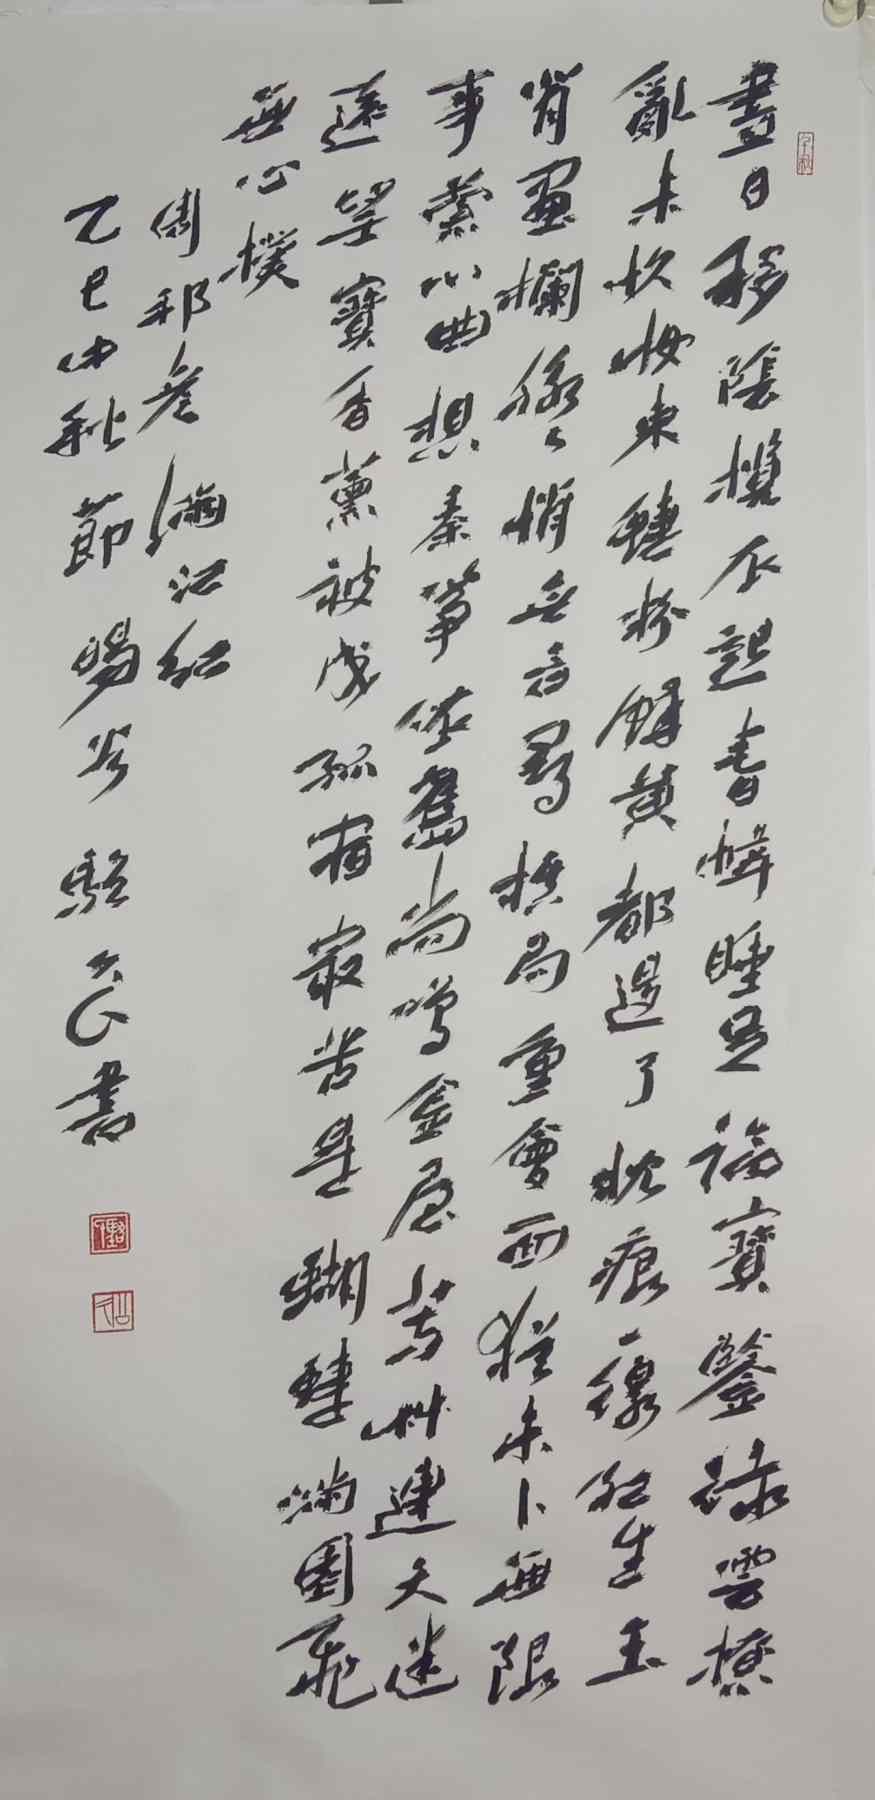 晝日移陰攬衣起春幃睡足臨寶鑒綠雲撩
亂未忺妝束蝶粉蜂黃都退了枕痕一線紅生玉
背畫欄脉々悄無言尋棋局重會面猶未卜無限
事縈心曲想秦箏依舊尚鳴金屋芳艸連天迷
遠望寶香薰被成孤宿最苦是蝴蝶滿園飛
無心撲
周邦彥滿江紅
乙巳中秋節陽谷駱書